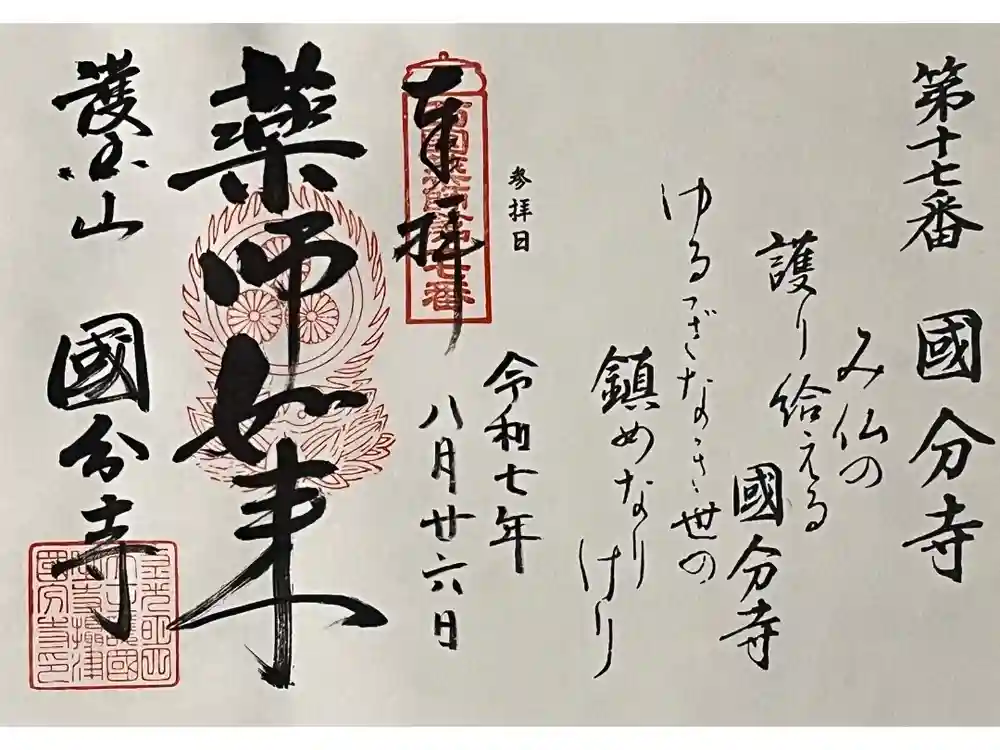 第十七番 國分寺
み仏の
護り給える
國分寺
ゆるぎなき世の
鎮めなりけり
参拝日
令和七年
八月廿六日
奉拝
西国薬師第十七番
薬師如来
護国山 國分寺